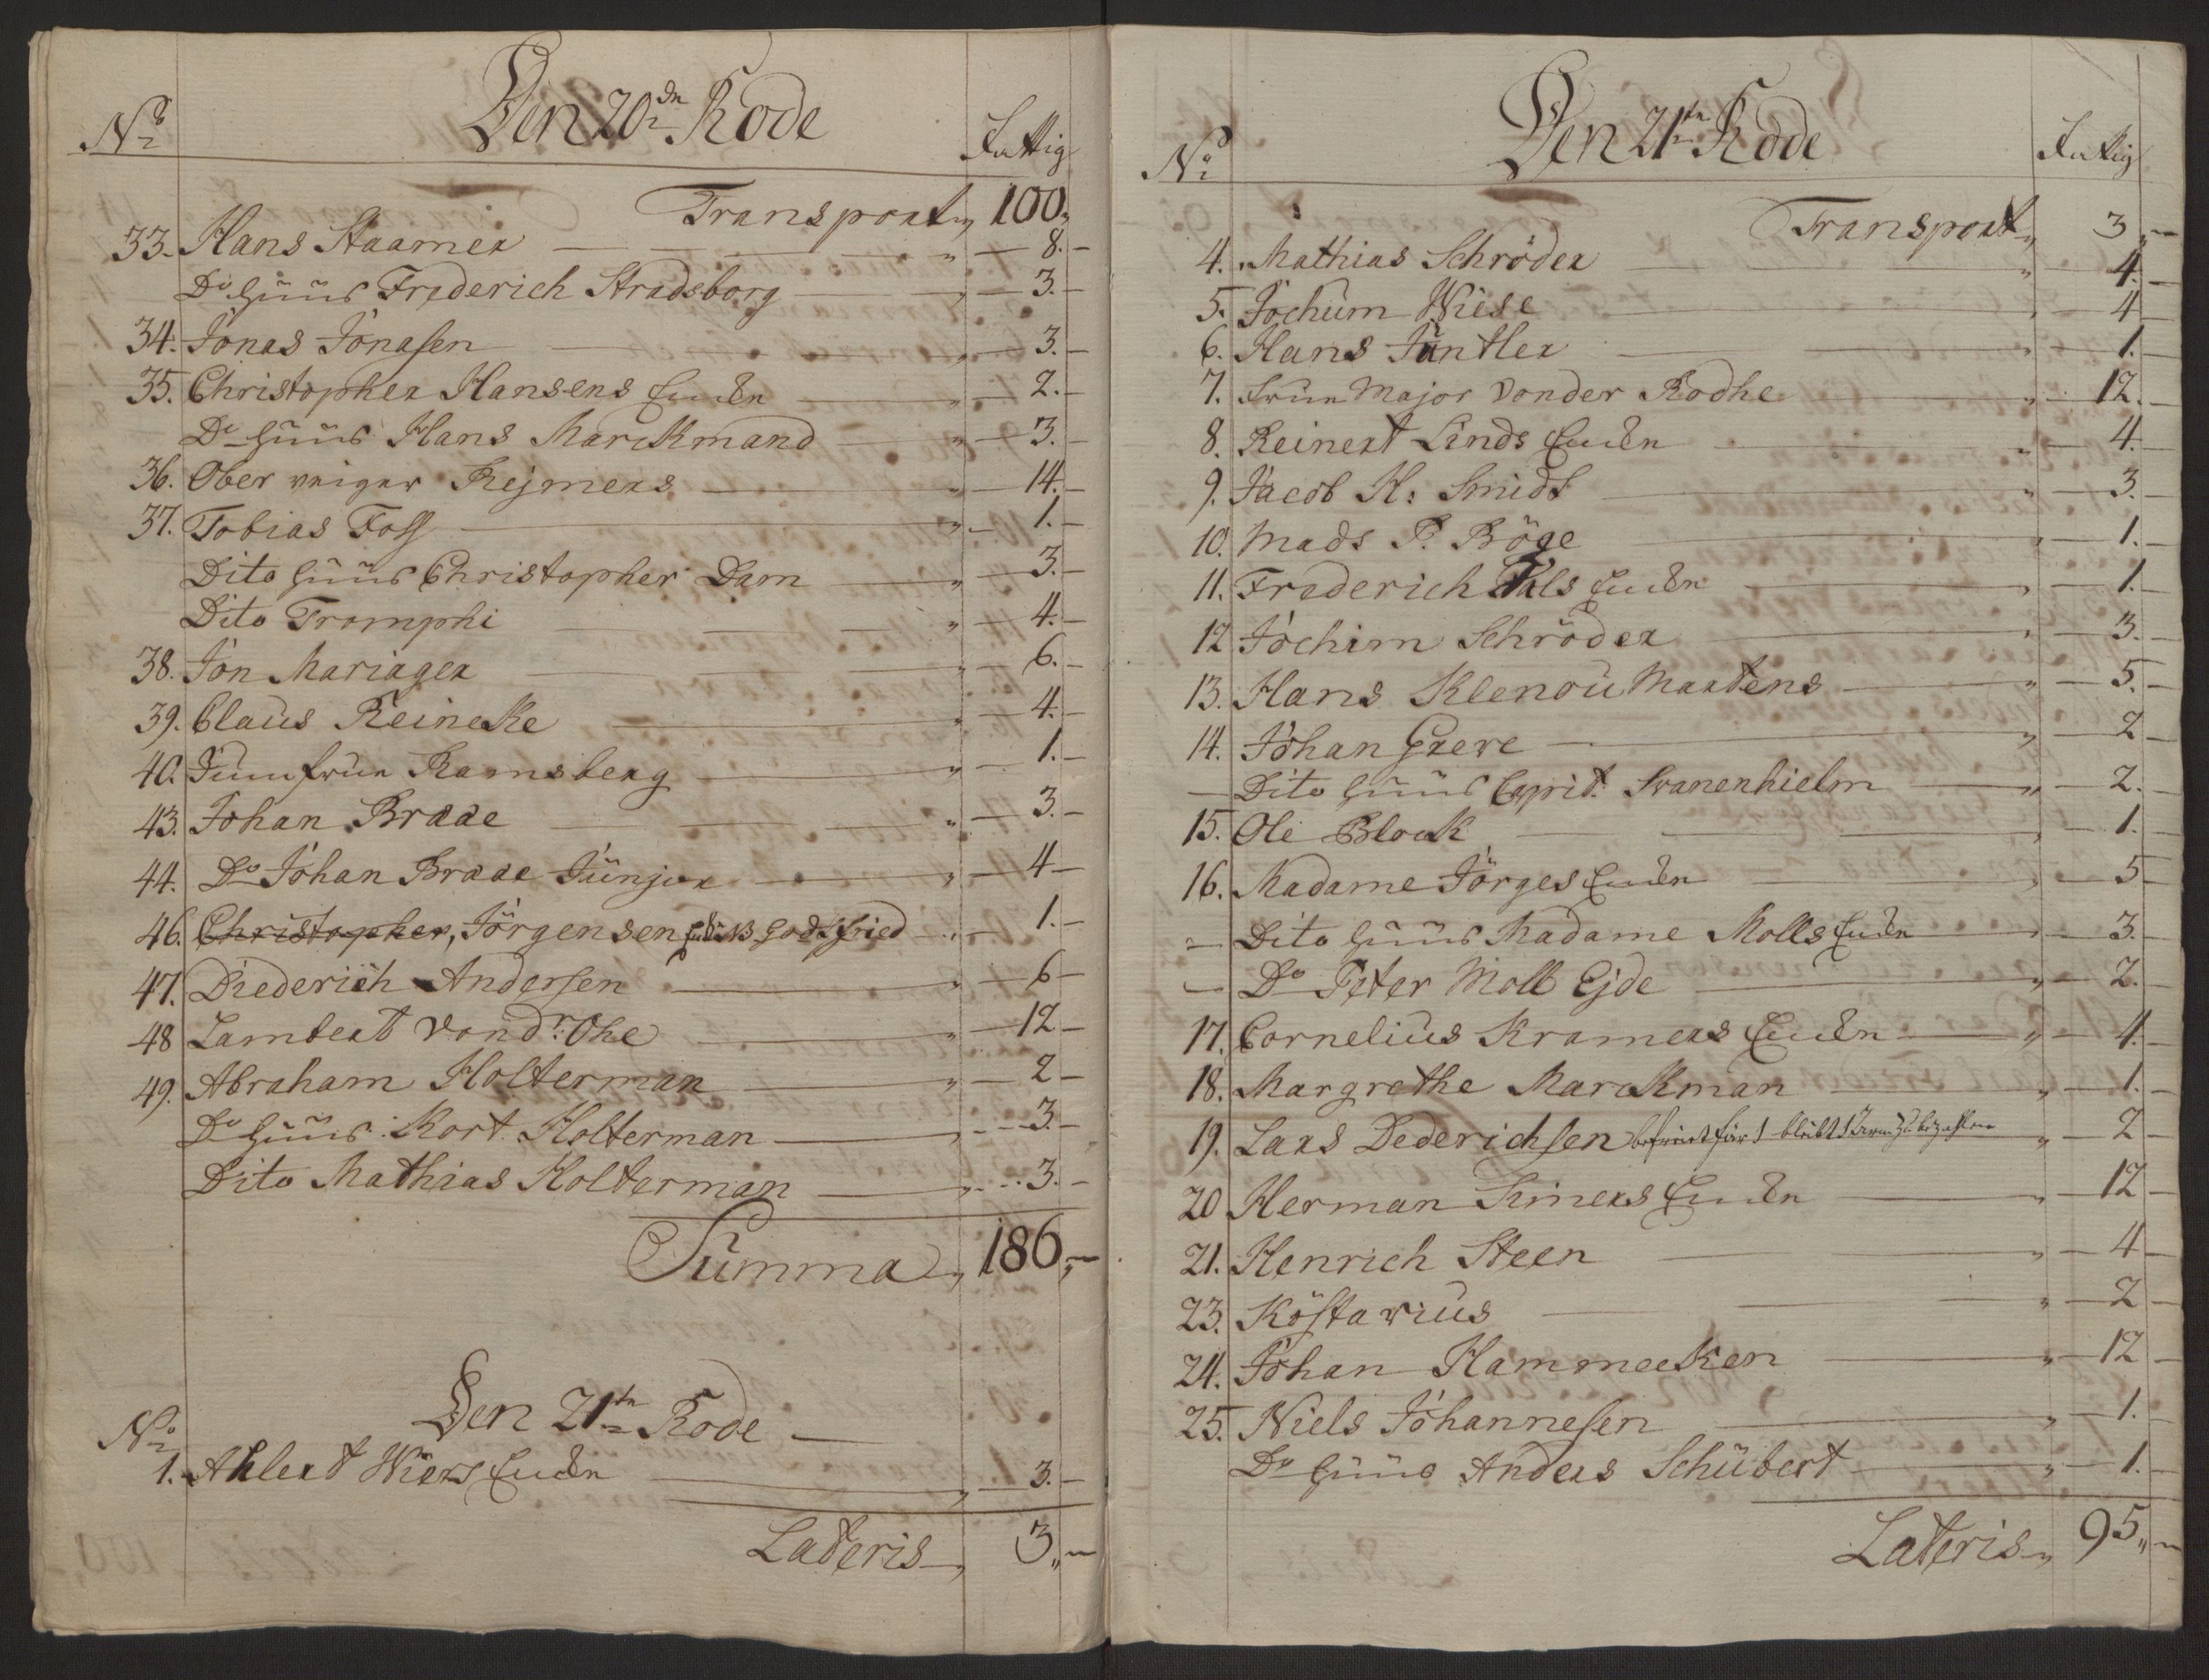 No Den 20de Rode Fattig
Transport 100
33. Hans Staamer 8.
Do Huus Frederich Stradsborg 3.
34. Jonas Jonasen 3.
35. Christopher Hansens Encken 2.
Do Huus Hans Marckmand 3.
36. Ober Rejmers 14.
37. Tobias Foss 1.
Dito Huus Christopher Dam 3.
Dito Tromphi 4.
38. Jon Mariager 6.
39. Claus Reineke 4.
40. Jumfrue Ramsberg 1.
43. Johan Braae 3.
44. Do Johan Braae Junjor 4
46. Christopher, Jörgensen Godtfried 1.
47. Diederich Andersen 6
48 Lambert Vond.r Ohe 12
49. Abraham Holterman 2
Do Huus Kort Holterman 3.
Dito Mathias Holterman 3.
Summa 186
Den 21te Rode
No
1. Ahlert Wiers Encken 3.
Lateris 3
No Den 21te Rode Fattig
Transport 3
4. Mathias Schröder 4.
5. Jochum Wiese 4
6. Hans Jüntler 1.
7. Frue Major Vonder Rodhe 12.
8. Reinert Linds Encken 4.
9. Jacob H: Smidt 3.
10. Mads P. Böge 1.
11. Frederich Encken 1.
12 Jochim Schröder 3.
13. Hans Klenou Martens 5.
14. Johan Greve 2
Dito Huus Capit. Svanenhielm 2.
15. Ole Block 1.
16. Madame Jörges Encken 5
Dito Huus Madame Molls Encken 3.
Do Peter Moll Ejde 2.
17. Cornelius Kramers Encken 4.
18. Margrethe Marckman 1.
19. Lars Dederichsen befriet für 1 bleibt 1 zu bezahlen 2
20 Herman Simers Encken 12
21. Henrich Steen 4
23.Köstarius 2
24. Johan Hammecken 12
25. Niels Johannesen 1.
Do Huus Anders Schübert 1.
Lateris 95